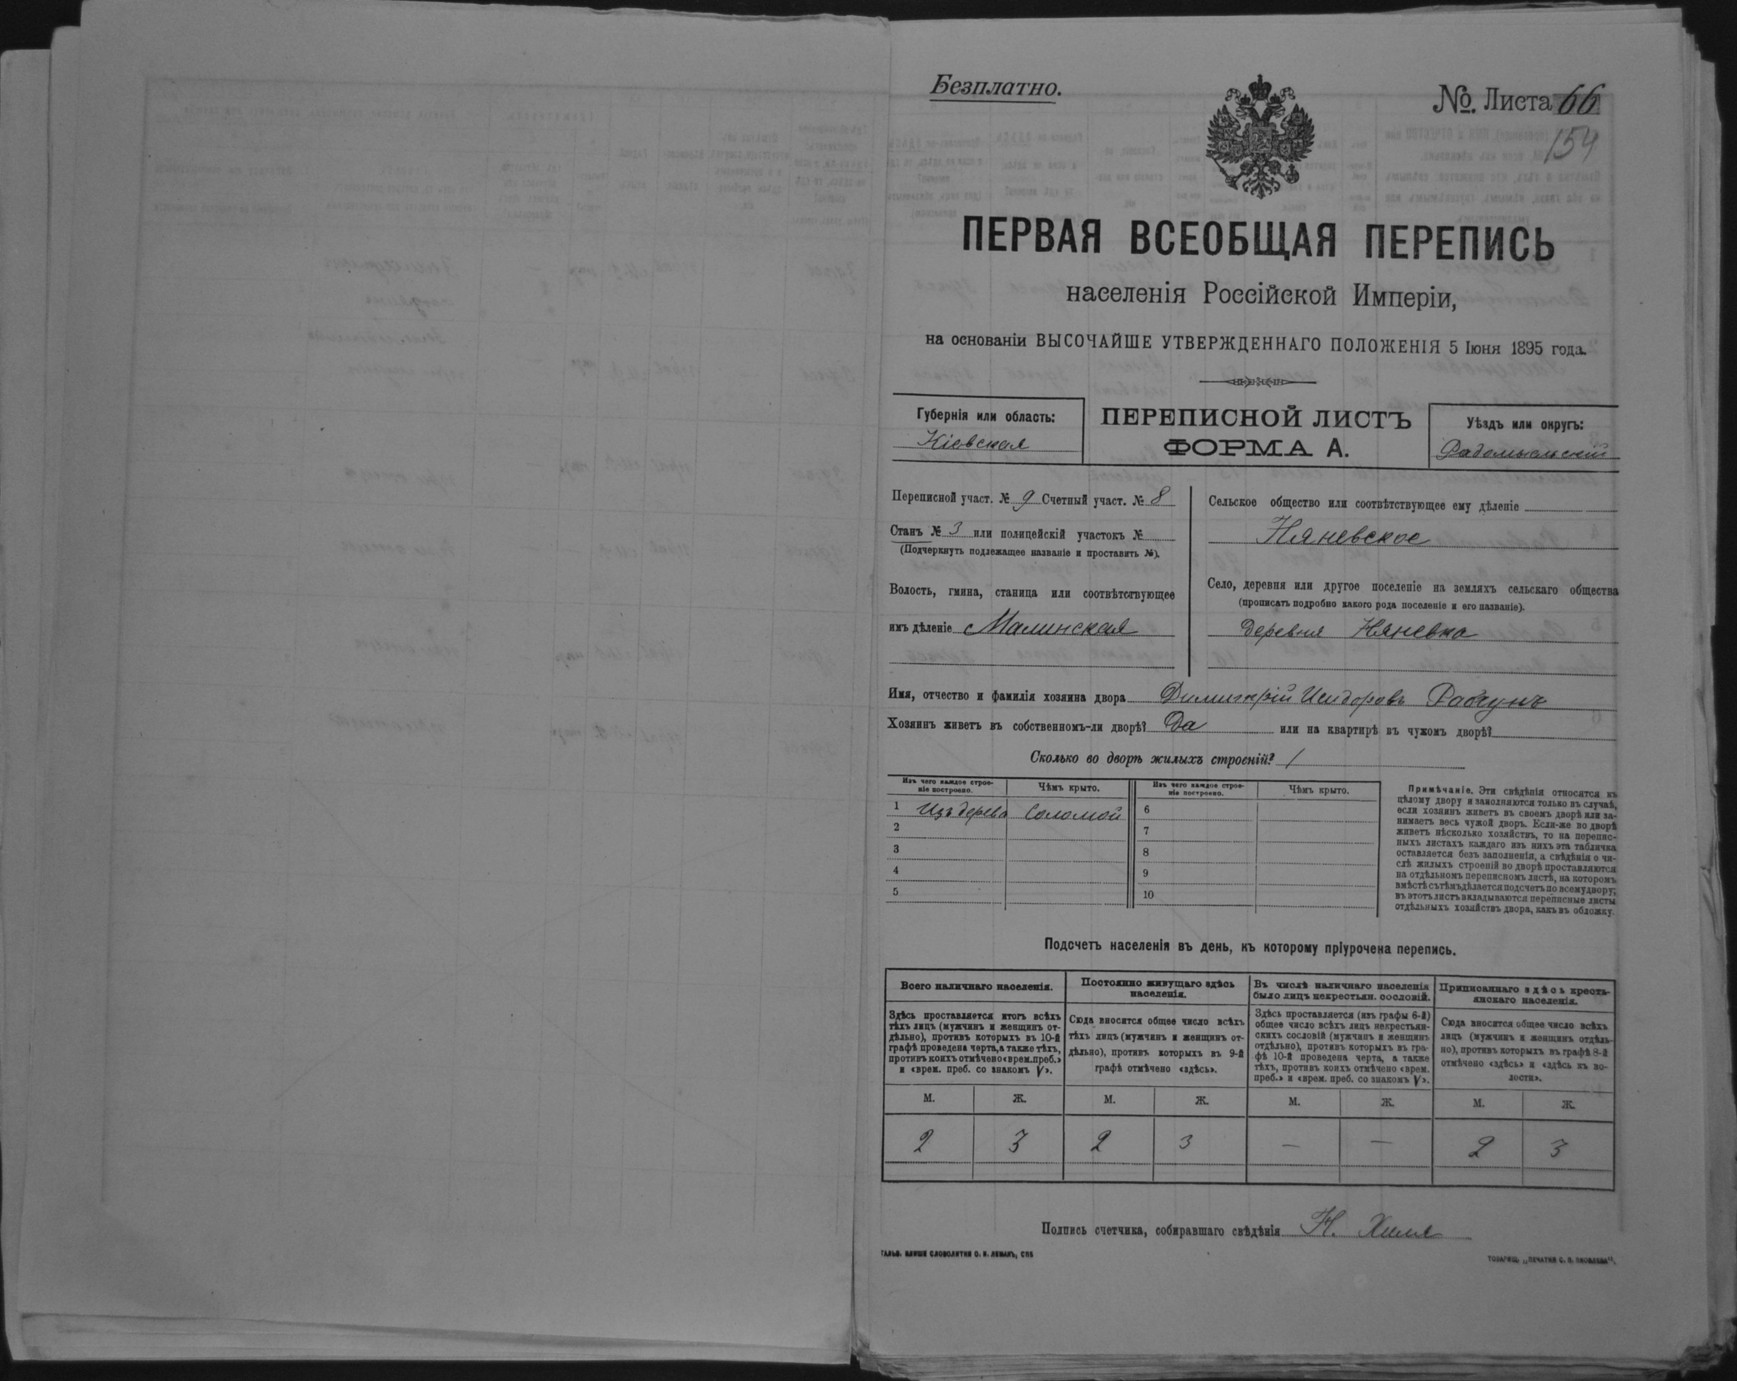 Безплатно.
№. Листа 66
154
ПЕРВАЯ ВСЕОБЩАЯ ПЕРЕПИСЬ
населенія Россійской Имперіи,
на основаніи ВЫСОЧАЙШЕ УТВЕРЖДЕННАГО ПОЛОЖЕНІЯ 5 Іюня 1895 года.
Губернія или область:
Кіевская
ПЕРЕПИСНОЙ ЛИСТЪ
ФОРМА А.
Уѣздъ или округъ:
Радомысльскій
Переписной участ. № 9 Счетный участ. № 8
Станъ № 3 или полицейскій участокъ №
(Подчеркнуть подлежащее названіе и проставить №).
Волость, гмина, станица или соотвѣтствующее
имъ дѣленіе Малинская
Сельское общество или соотвѣтствующее ему дѣленіе
Няневское
Село, деревня или другое поселеніе на земляхъ сельскаго общества
(прописать подробно какого рода поселеніе и его названіе).
деревня Няневка
Имя, отчество и фамилія хозяина двора Димитрій Исидоровъ
Хозяинъ живетъ въ собственномъ-ли дворѣ? Да или на квартирѣ въ чужомъ дворѣ?
Сколько во дворѣ жилыхъ строеній? 1
Изъ чего каждое строе-
ніе построено.
Чѣмъ крыто.
Изъ чего каждое строе-
ніе построено.
Чѣмъ крыто.
1 Изъ дерева Соломой 6
2 7
3 8
4 9
5 10
Примѣчаніе. Эти свѣдѣнія относятся къ
цѣлому двору и заполняются только въ случаѣ,
если хозяинъ живетъ въ своемъ дворѣ или за-
нимаетъ весь чужой дворъ. Если-же во дворѣ
живетъ нѣсколько хозяйствъ, то на перепис-
ныхъ листахъ каждаго изъ нихъ эта табличка
оставляется безъ заполненія, а свѣдѣнія о чи-
слѣ жилыхъ строеній во дворѣ проставляются
на отдѣльномъ переписномъ листѣ, на которомъ
вмѣстѣ съ тѣмъ дѣлается подсчетъ по всему двору;
въ этотъ листъ вкладываются переписные листы
отдѣльныхъ хозяйствъ двора, какъ въ обложку.
Подсчетъ населенія въ день, къ которому пріурочена перепись.
Всего наличнаго населенія.
Здѣсь проставляется итогъ всѣхъ
тѣхъ лицъ (мужчинъ и женщинъ от-
дѣльно), противъ которыхъ въ 10-й
графѣ проведена черта, а также тѣхъ,
противъ коихъ отмѣчено «врем. преб.»
и «врем. преб. со знакомъ V».
Постоянно живущаго здѣсь
населенія.
Сюда вносится общее число всѣхъ
тѣхъ лицъ (мужчинъ и женщинъ от-
дѣльно), противъ которыхъ въ 9-й
графѣ отмѣчено «здѣсь».
Въ числѣ наличнаго населенія
было лицъ некрестьян. сословій.
Здѣсь проставляется (изъ графы 6-й)
общее число всѣхъ лицъ некрестьян-
скихъ сословій (мужчинъ и женщинъ
отдѣльно), противъ которыхъ въ гра-
фѣ 10-й проведена черта, а также
тѣхъ, противъ коихъ отмѣчено «врем.
преб.» и «врем. преб. со знакомъ V».
Приписаннаго здѣсь кресть-
янскаго населенія.
Сюда вносится общее число всѣхъ
лицъ (мужчинъ и женщинъ отдѣль-
но), противъ которыхъ въ графѣ 8-й
отмѣчено «здѣсь» и «здѣсь въ во-
лости».
М. Ж. М. Ж. М. Ж. М. Ж.
2 3 2 3 — — 2 3
Подпись счетчика, собиравшаго свѣдѣнія Н.
ГАЛЬВ. КЛИШЕ СЛОВОЛИТНИ О. И. ЛЕМАНЪ, СПБ
ТОВАРИЩ. „ПЕЧАТНЯ С. П. ЯКОВЛЕВА".